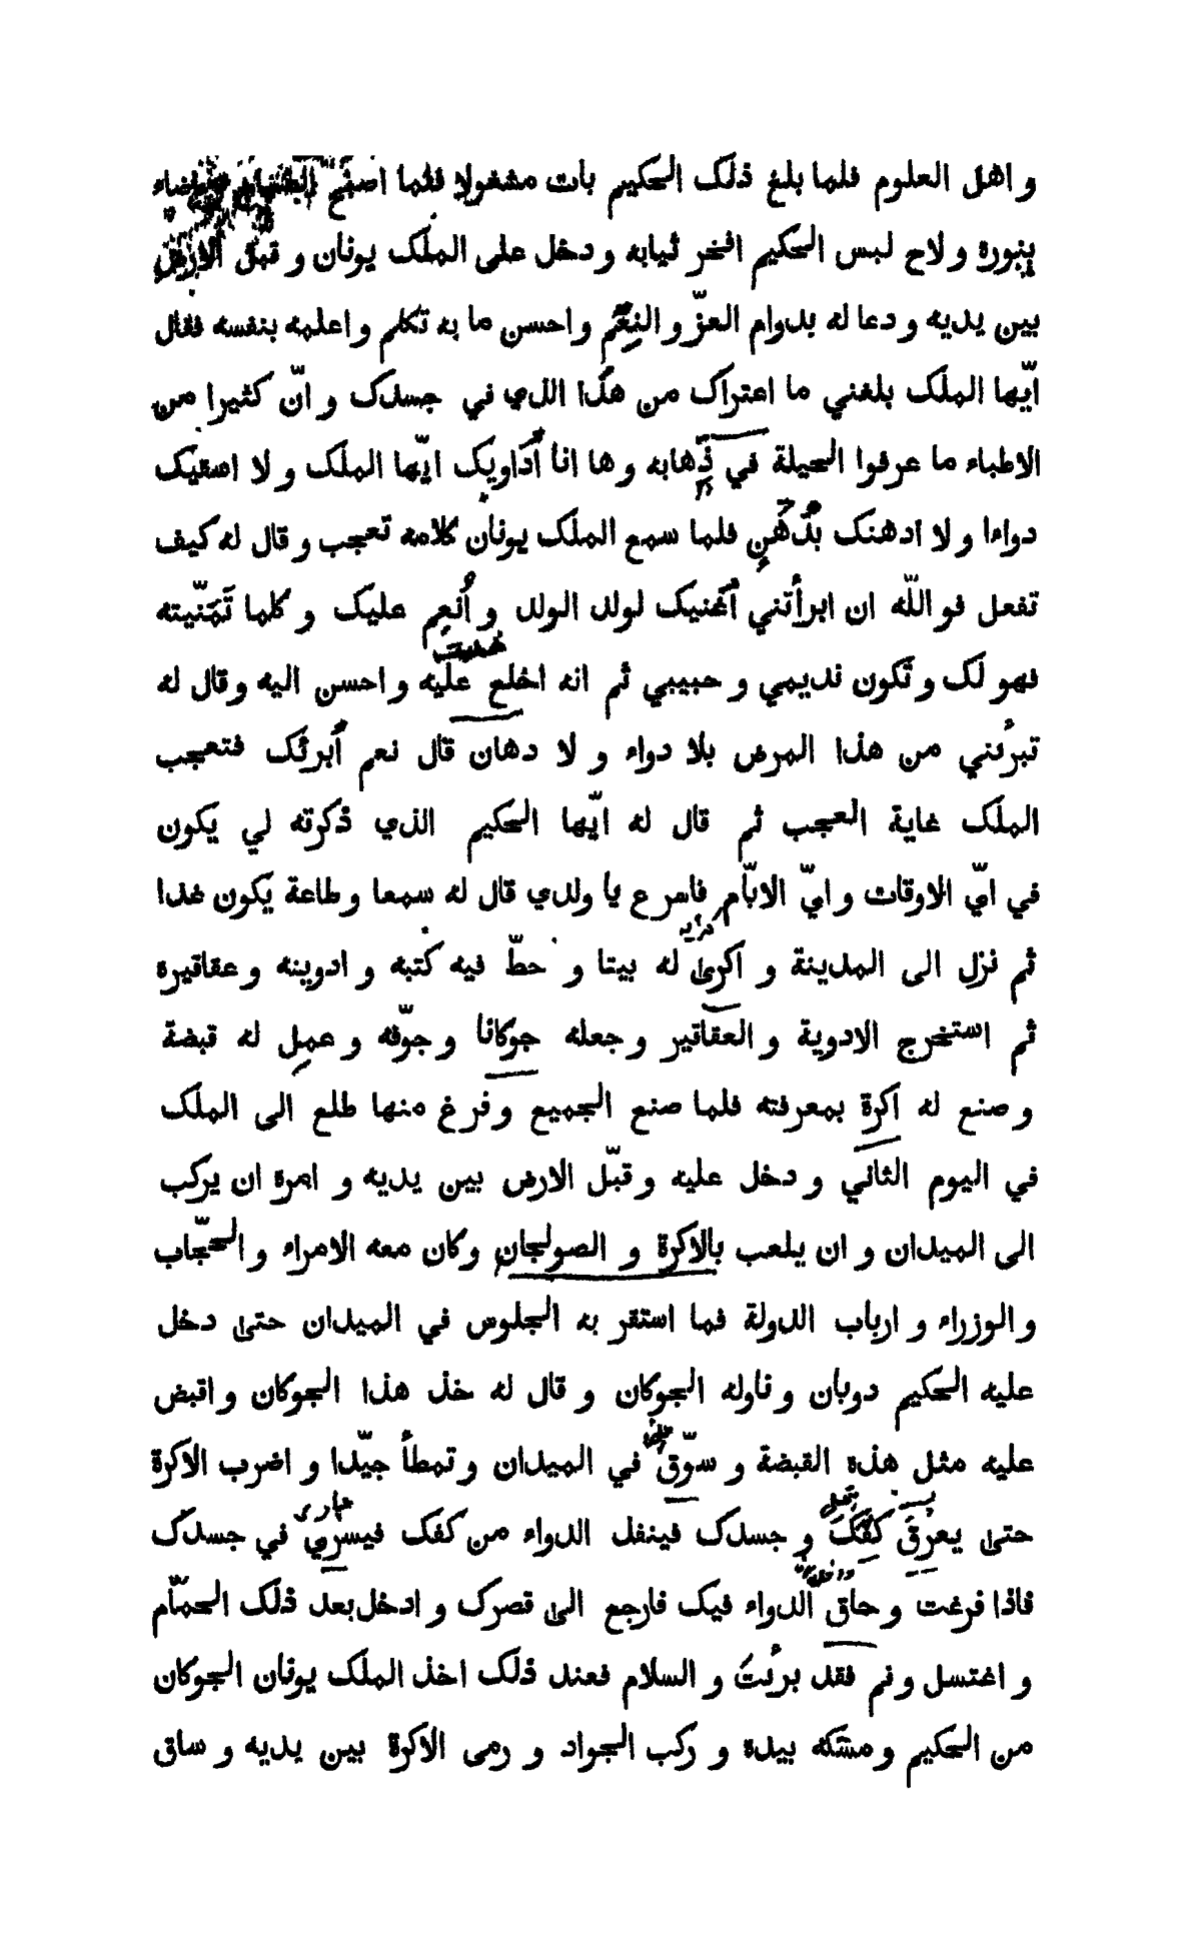 و اهل العلوم فلما بلغ ذلك الحكيم بات مشغولا فلما اصبح
بنوره و لاح لبس الحكيم افخر ثيابه و دخل على الملك يونان و قبل الارض
بين يديه و دعا له بدوام العزّ و النِعَم و احسن ما به تكلم و اعلمه بنفسه فقال
ايّها الملك بلغني ما اعتراك من هذا الذي في جسدك و انّ كثيرا من
الاطباء ما عرفوا الحيلة في ذهابه و ها انا أداويك ايّها الملك و لا اسقيك
دواءا و لا ادهنك بدُهنٍ فلما سمع الملك يونان كلامه تعجب و قال له كيف
تفعل فو اللّه ان ابرأتني أغنيك لولد الولد و أُنعِم عليك و كلما تَمَنّيته
فهو لك و تكون نديمي و حبيبي ثم انه اخلع عليه و احسن اليه و قال له
تبرُئني من هذا المرض بلا دواء و لا دهان قال نعم أبرئك فتعجب
الملك غاية العجب ثم قال له ايّها الحكيم الذي ذكرته لي يكون
في ايّ الاوقات و ايّ الايّام فاسرع يا ولدي قال له سمعا و طاعة يكون غدا
ثم نزل الى المدينة و اكرى له بيتا و حطّ فيه كتبه و ادوينه و عقاقيره
ثم استخرج الادوية و العقاقير و جعله جوكانا و جوّفه و عمِل له قبضة
و صنع له اكرة بمعرفته فلما صنع الجميع و فرغ منها طلع الى الملك
في اليوم الثاني و دخل عليه و قبّل الارض بين يديه و امره ان يركب
الى الميدان و ان يلعب بالاكرة و الصولجان وكان معه الامراء و الحجّاب
و الوزراء و ارباب الدولة فما استقر به الجلوس في الميدان حتى دخل
عليه الحكيم دوبان و ناوله الجوكان و قال له خذ هذا الجوكان و اقبض
عليه مثل هذه القبضة و سوّق في الميدان و تمطأ جيّدا و اضرب الاكرة
حتى يعرَق كفّك و جسدك فينفل الدواء من كفك فيسري في جسدك
فاذا فرغت و حاق الدواء فيك فارجع الى قصرك و ادخل بعد ذلك الحمّام
و اغتسل و نم فقد برئتَ و السلام فعند ذلك اخذ الملك يونان الجوكان
من الحكيم و مسكه بيده و ركب الجواد و رمى الاكرة بين يديه و ساق